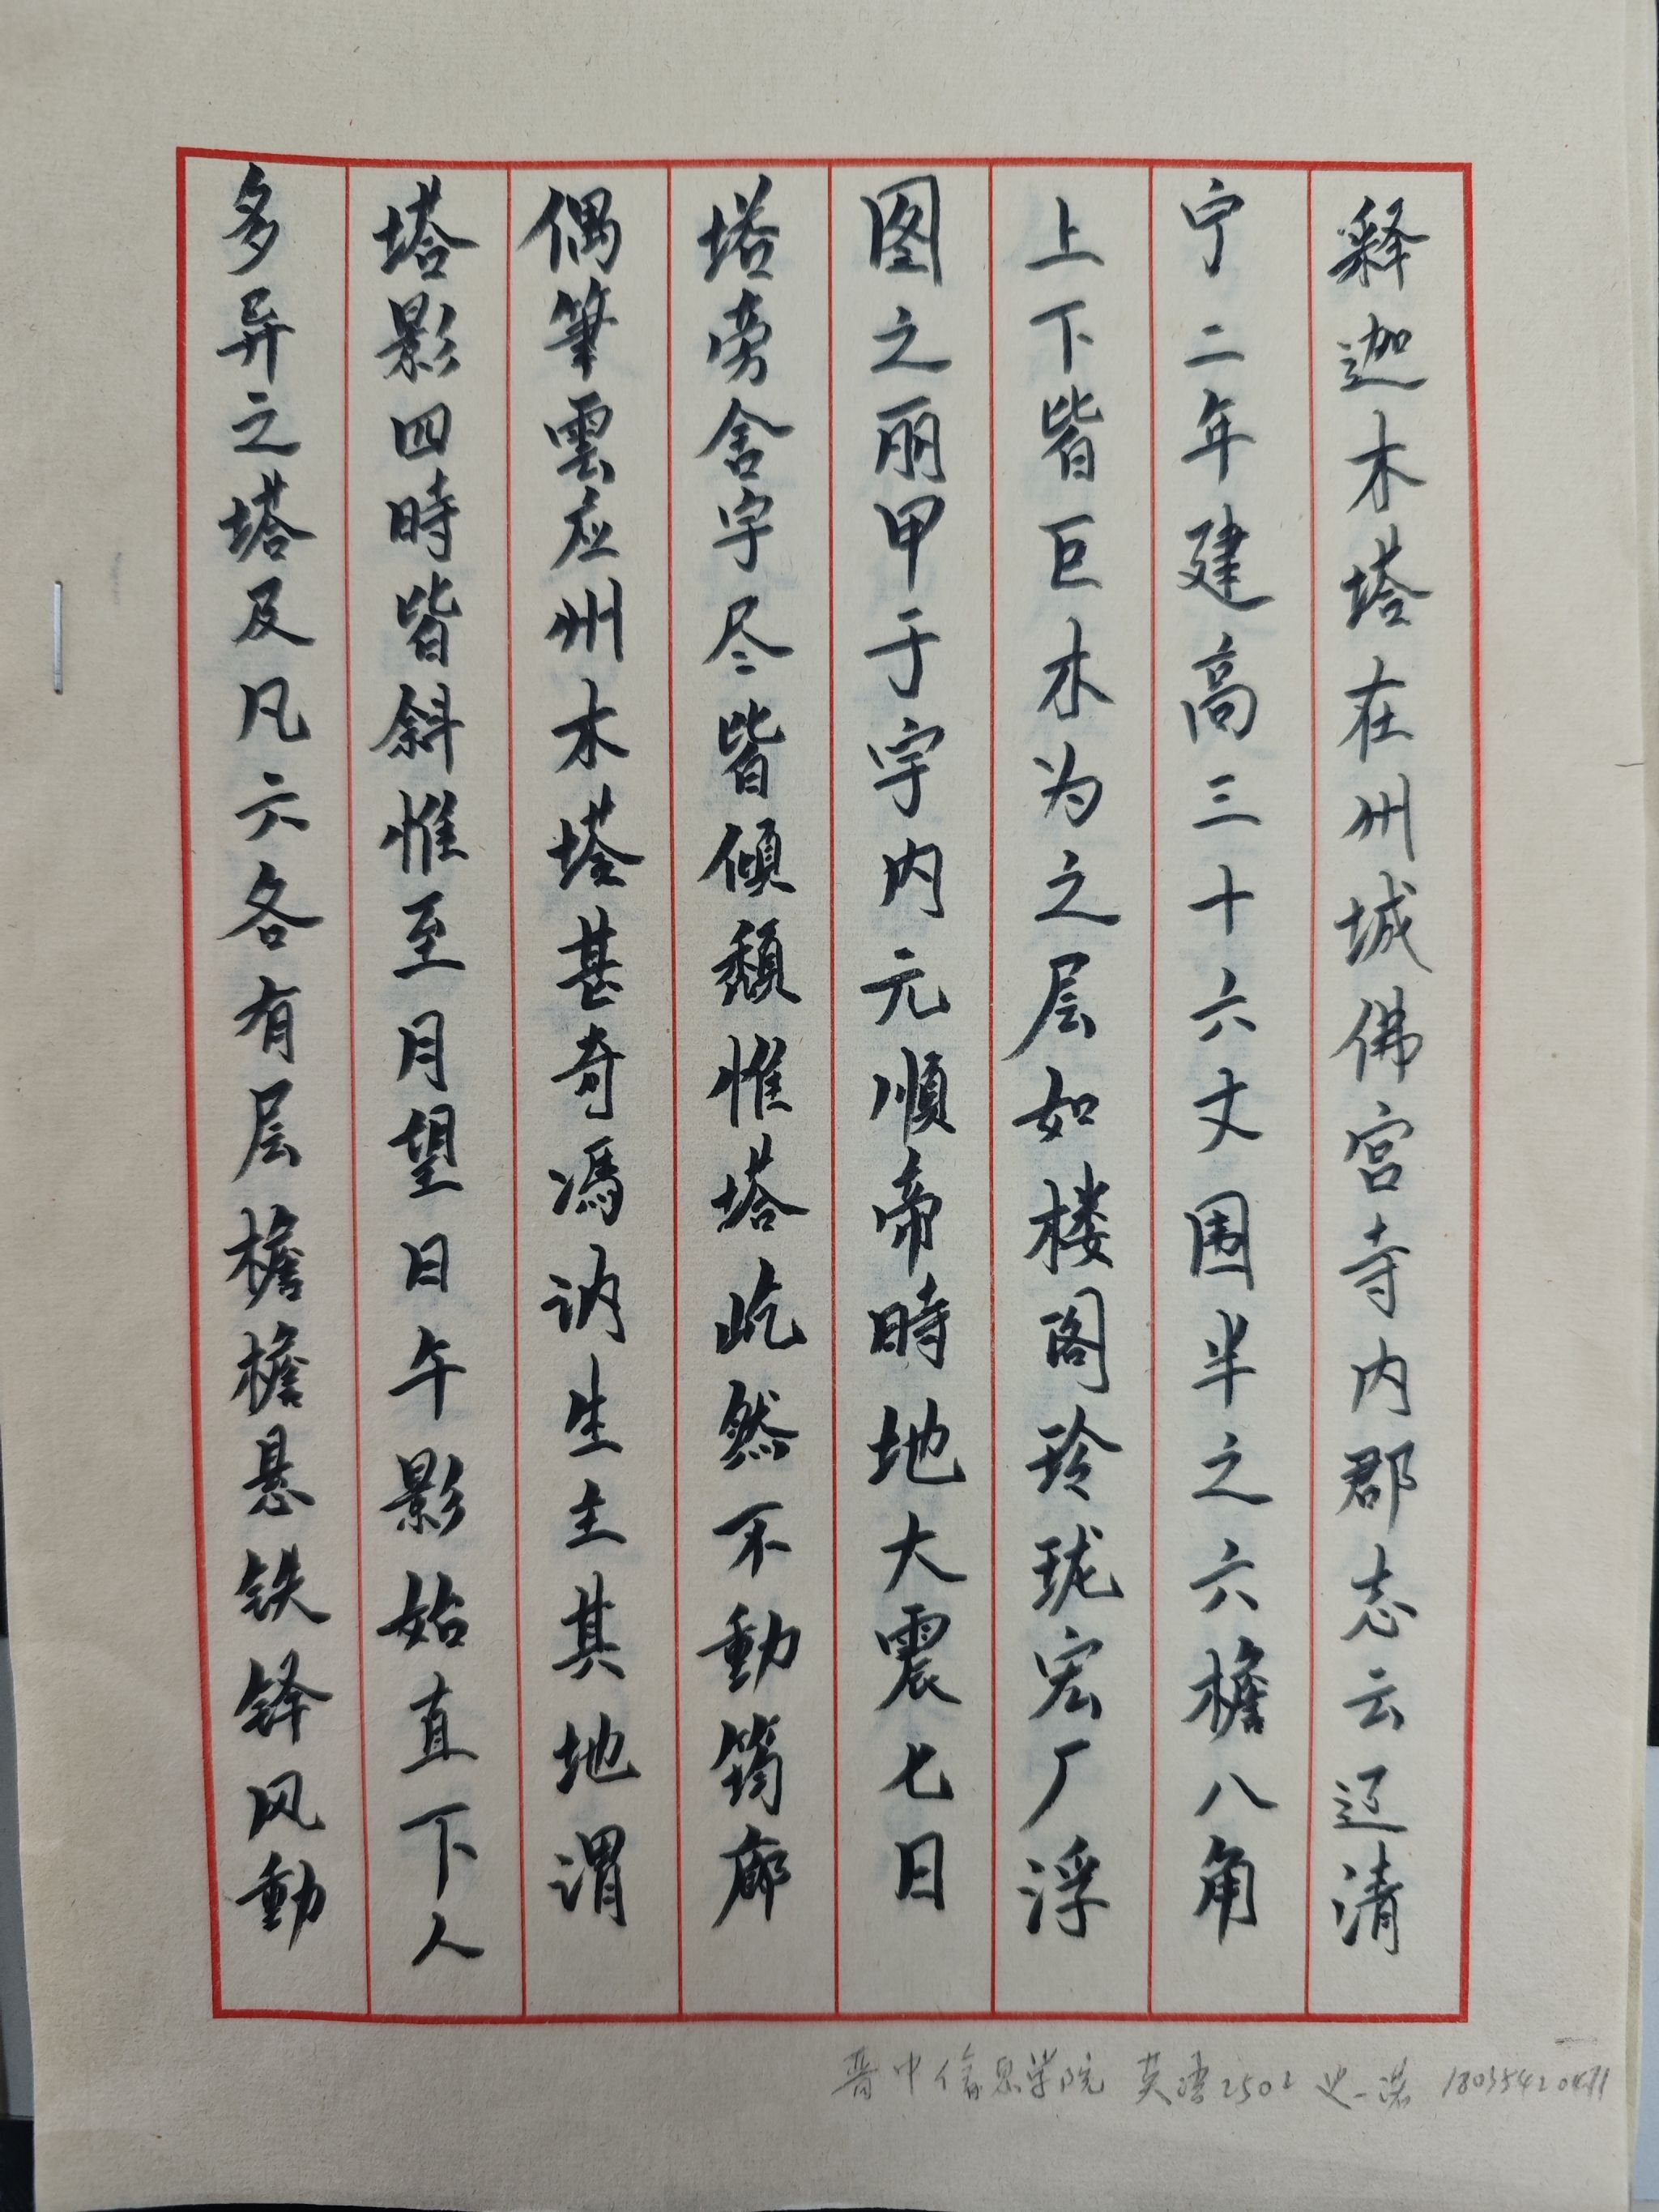 释迦木塔在州城佛宫寺内郡志云辽清
宁二年建高三十六丈围半之六檐八角
上下皆巨木为之层如楼阁玲珑宏厂浮
图之丽甲于宇内元順帝時地大震七日
塔旁舍宇尽皆倾颓惟塔屹然不動筠廊
偶筆雲应州木塔甚奇馮讷生主其地谓
塔影四時皆斜惟至月望日午影始直下人
多异之塔及凡六各有层檐檐悬铁铎风動
晋中信息学院 英语2502 史一诺 18035420471